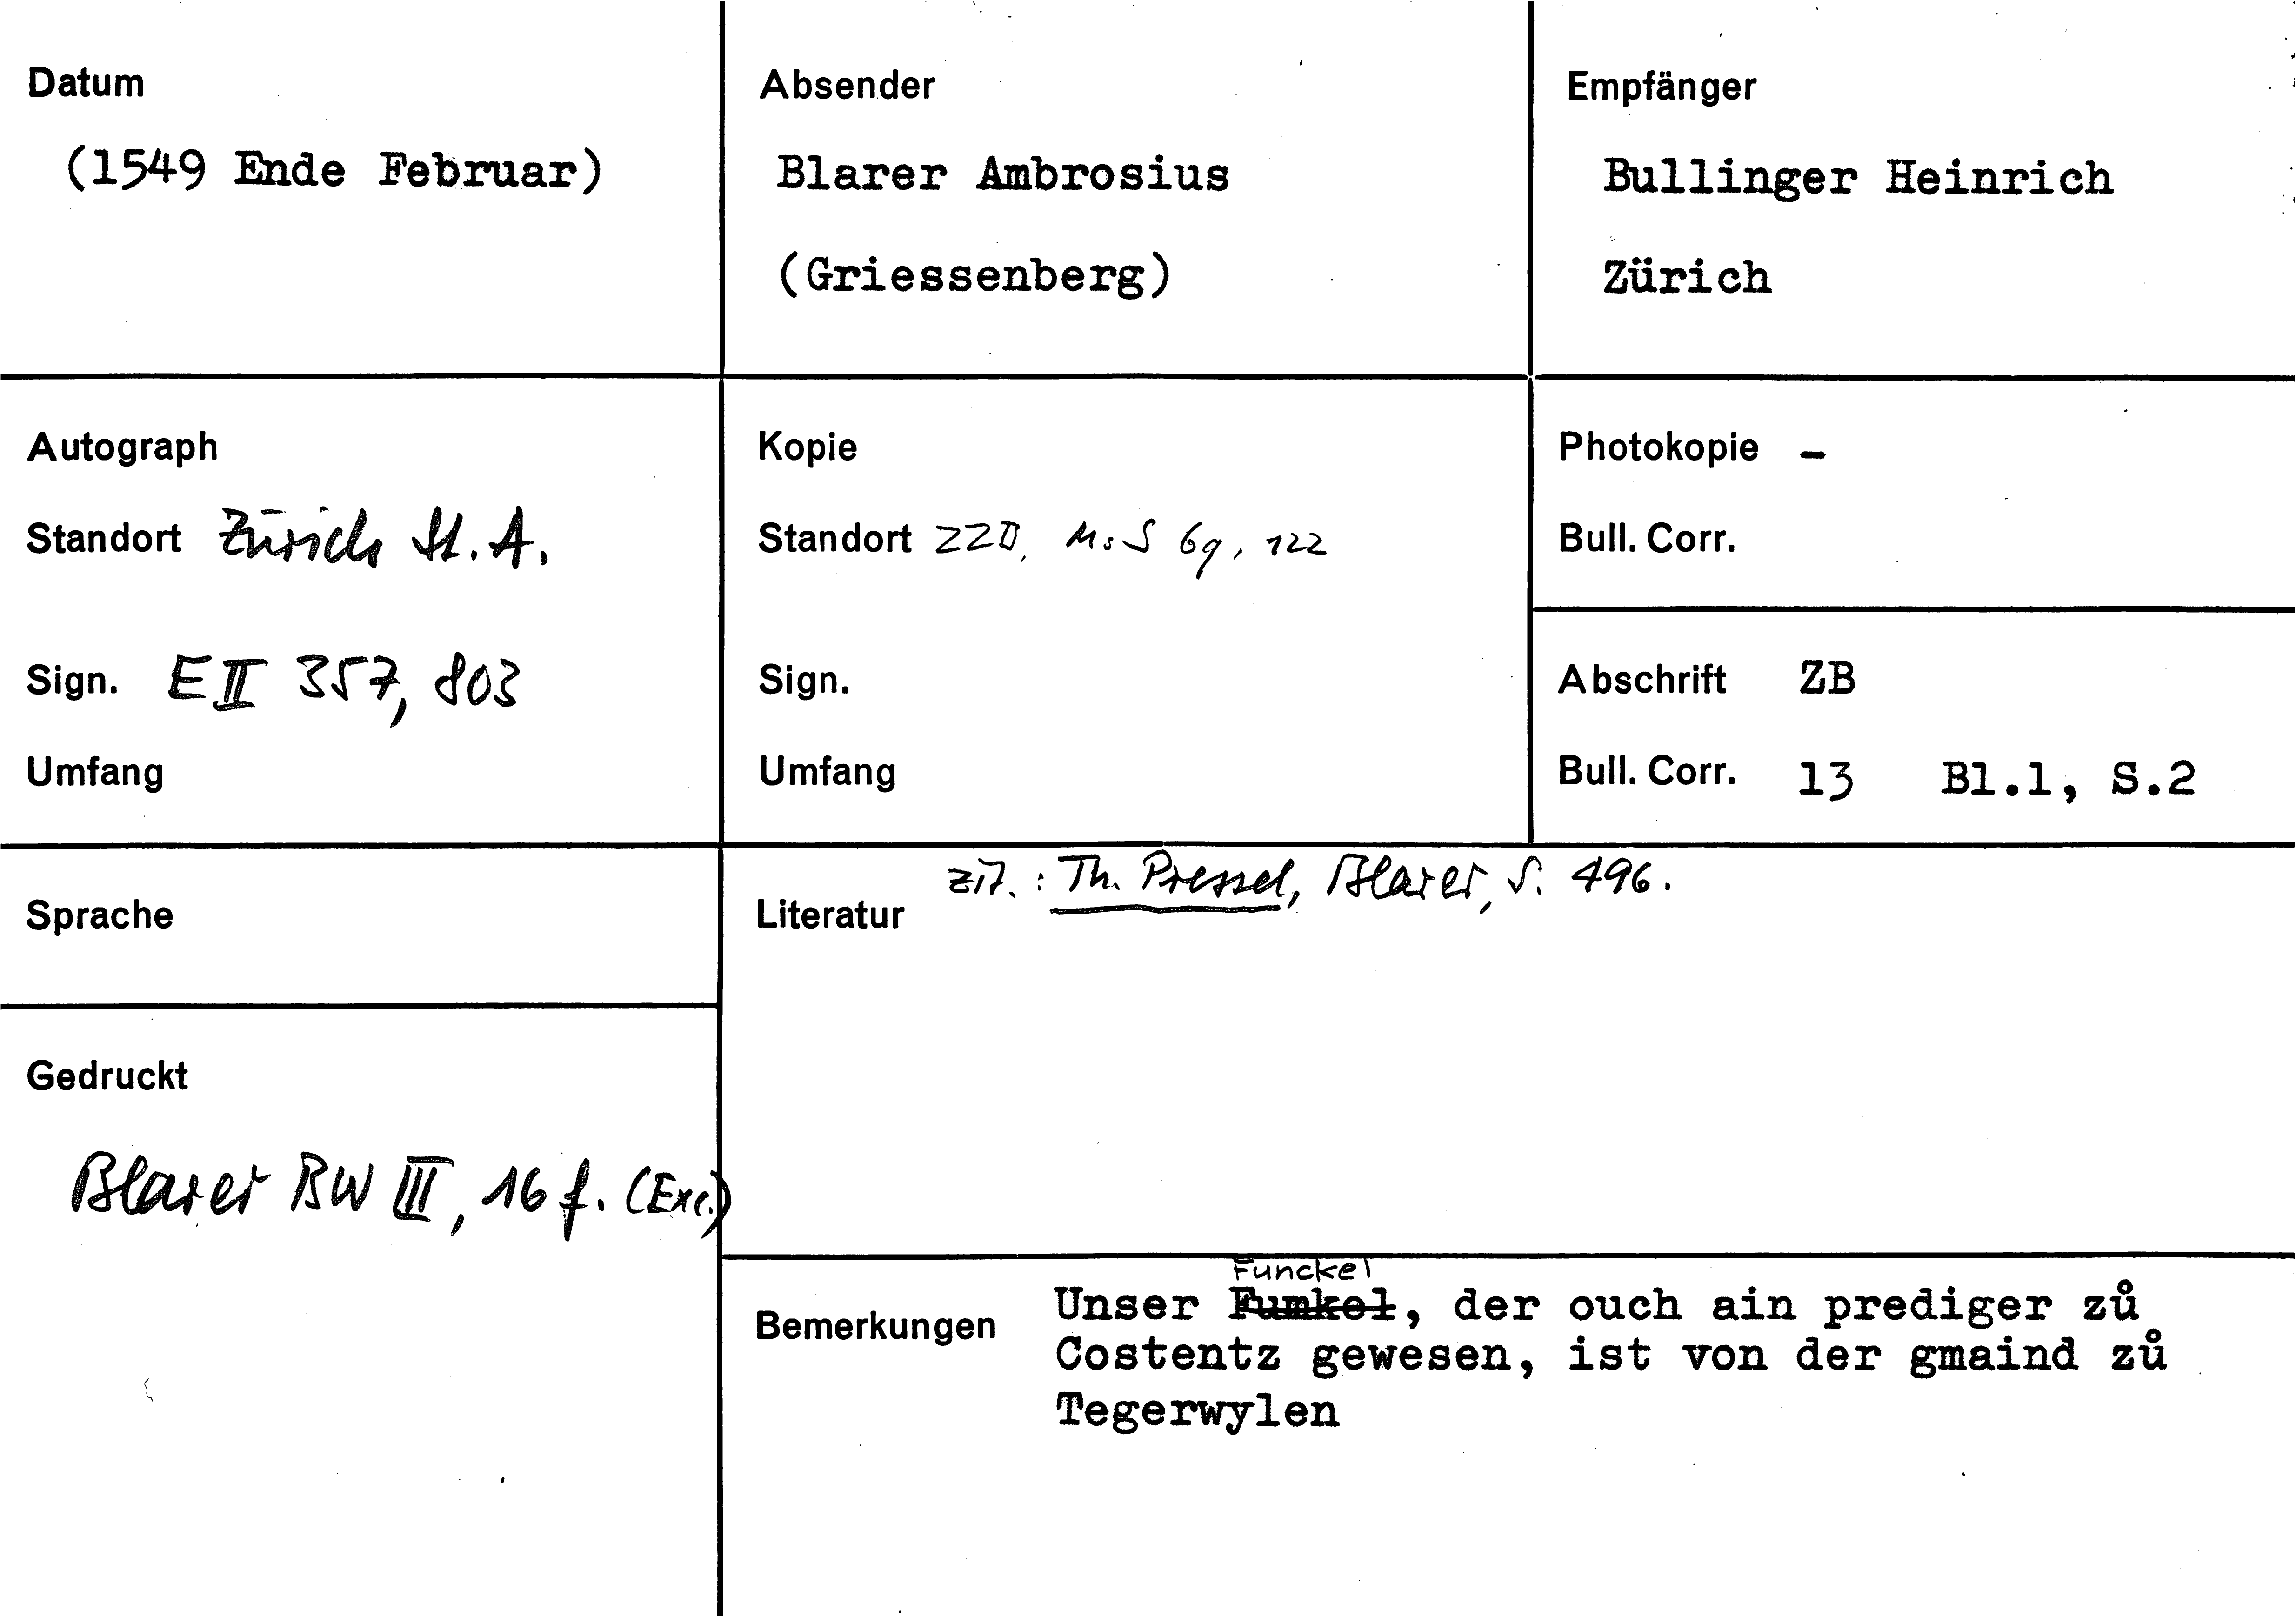 Datum
(1549 Ende Februar)
Absender
Blarer Ambrosius
(Griessenberg)
Empfänger
Bullinger Heinrich
Zürich
Autograph
Standort Zürich St. A.
Sign. E II 357, 803
Umfang
Kopie
Standort ZZB, Ms S 69, 122
Sign.
Umfang
Photokopie -
Bull. Corr.
Abschrift ZB
Bull. Corr. 13 Bl.1, S.2
Sprache
Gedruckt
Blarer BW III, 16 f. (Exc.)
zit.: Th. Pressel, Blarer, S. 496.
Literatur
Funckel
Bemerkungen Unser Funkel, der ouch ain prediger zů
Costentz gewesen, ist von der gmaind zů
Tegerwylen